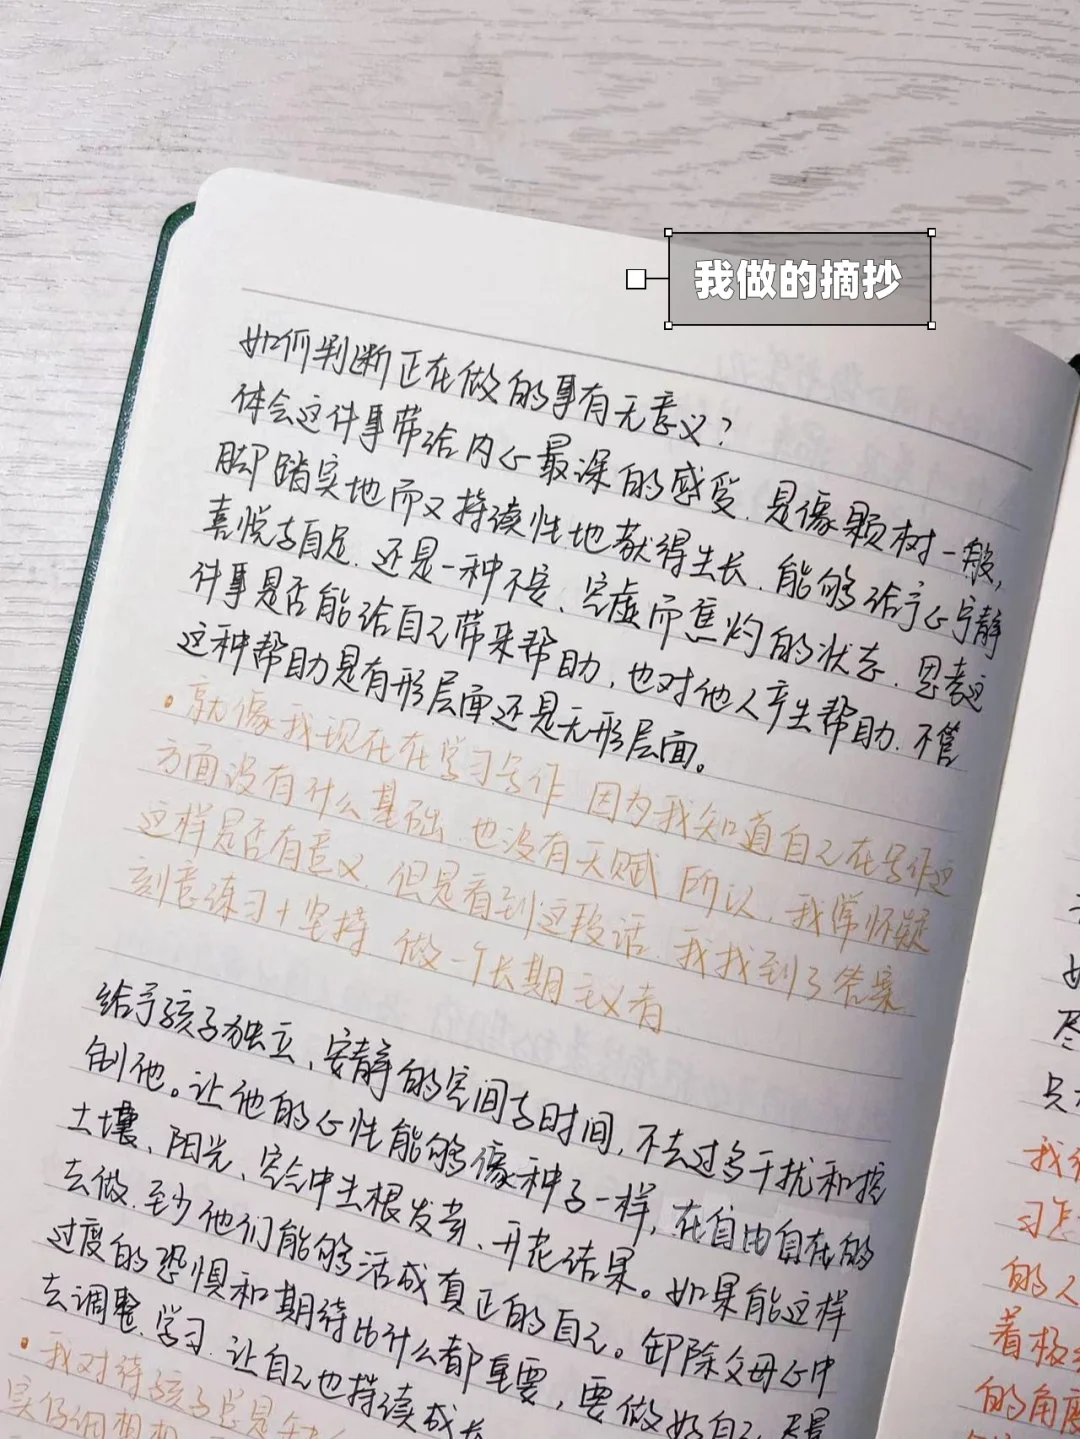 我做的摘抄
如何判断正在做的事有无意义?
体会这件事带给内心最深的感受.是像颗树一般,
脚踏实地而又持续性地获得生长.能够给予心宁静
喜悦与自足.还是一种不安、空虚而焦灼的状态.思考这
件事是否能给自己带来帮助,也对他人产生帮助.不管
这种帮助是有形层面还是无形层面。
·就像我现在在学习写作 因为我知道自己在写作这
方面没有什么基础.也没有天赋 所以,我常怀疑
这样是否有意义.但是看到这段话.我找到了答案
刻意练习+坚持 做一个长期主义者
给予孩子独立、安静的空间与时间,不去过多干扰和控
制他。让他的心性能够像种子一样,在自由自在的
土壤、阳光、空气中生根发芽、开花结果。如果能这样
去做.至少他们能够活成真正的自己。卸除父母心中
过度的恐惧和期待比什么都重要,要做好自己.尽量
去调整.学习.让自己也持续成长
·我对待孩子总是
我
习怎
的人
着极
的角度